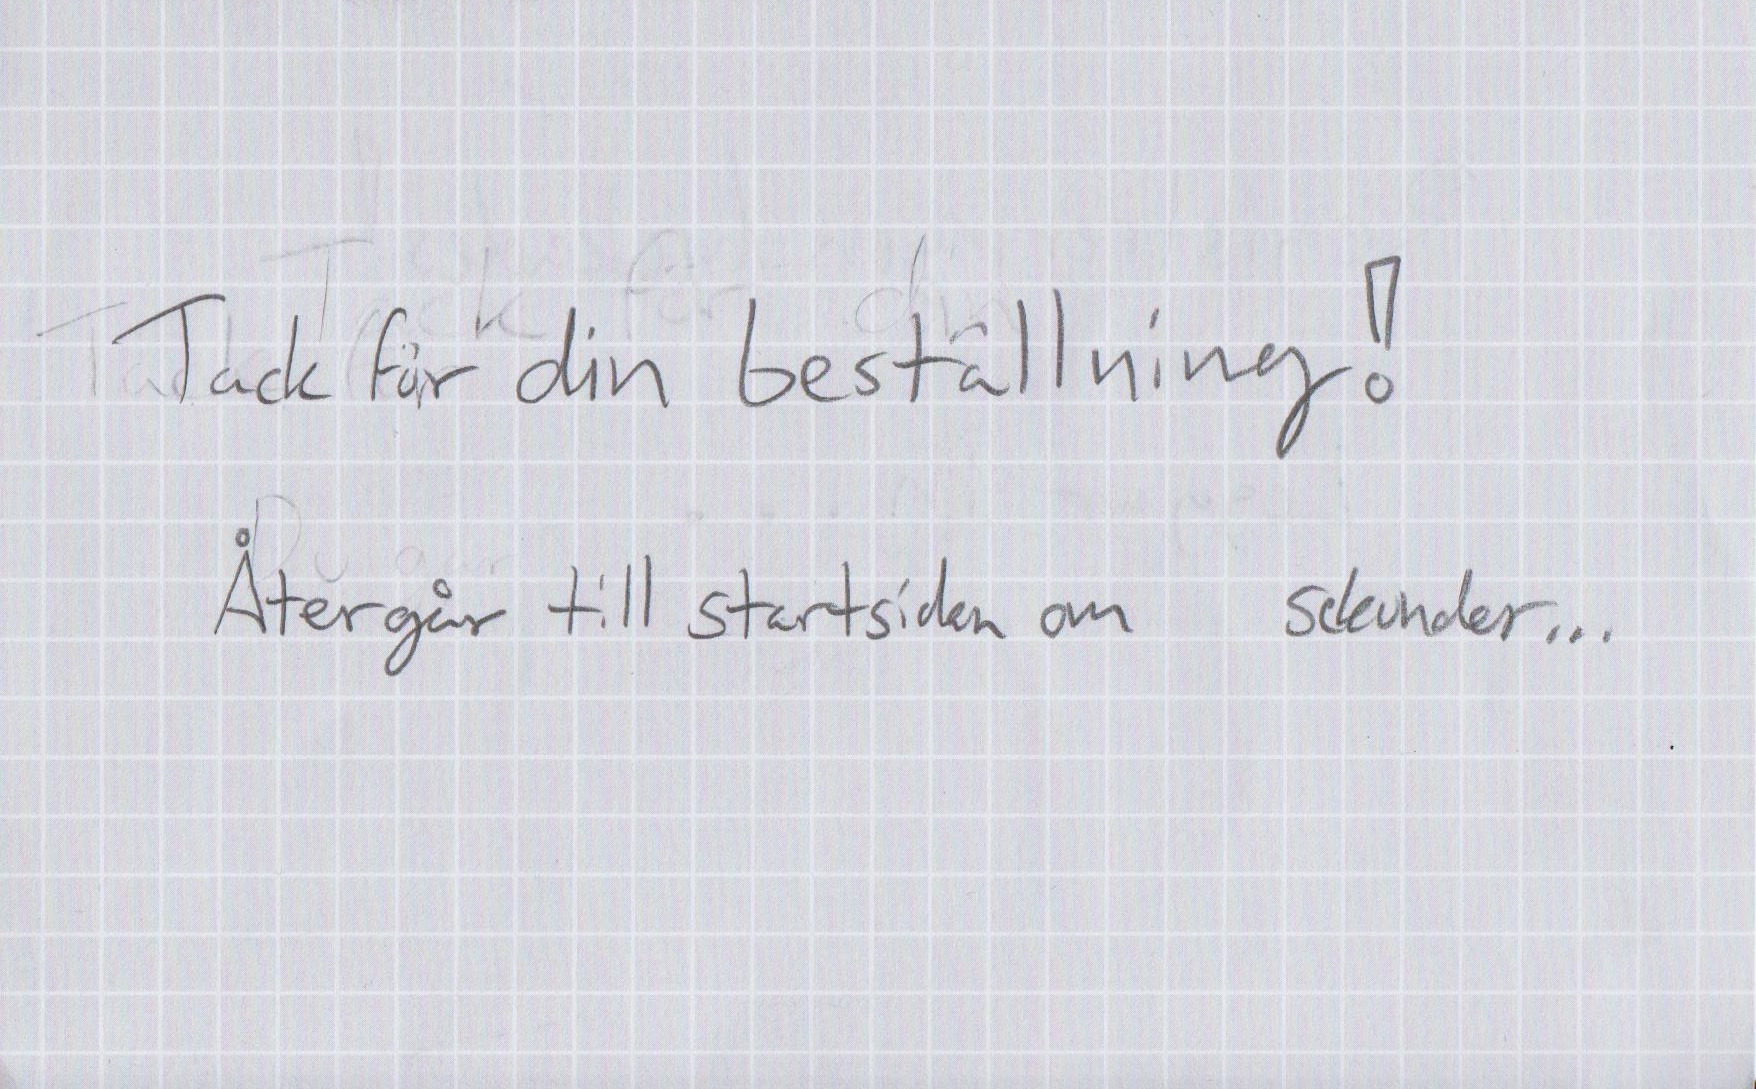 Tack för din beställning!
Återgår till startsidan om sekunder...